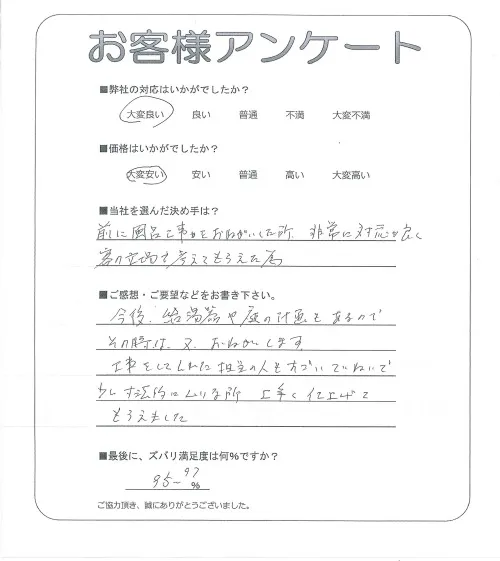 お客様アンケート
■弊社の対応はいかがでしたか？
大変良い 良い 普通 不満 大変不満
■価格はいかがでしたか？
大変安い 安い 普通 高い 大変高い
■当社を選んだ決め手は？
前に風呂工事をおねがいした所、非常に対応が良く
客の立場を考えてもらえた為
■ご感想・ご要望などをお書き下さい。
今後、給湯器や庭の計画もあるので
その時は、又、おねがいします
工事をしてくれた担当の人もすごいていねいで
少し寸法的にムリな所 上手く仕上げて
もらえました
■最後に、ズバリ満足度は何%ですか？
95～97
%
ご協力頂き、誠にありがとうございました。